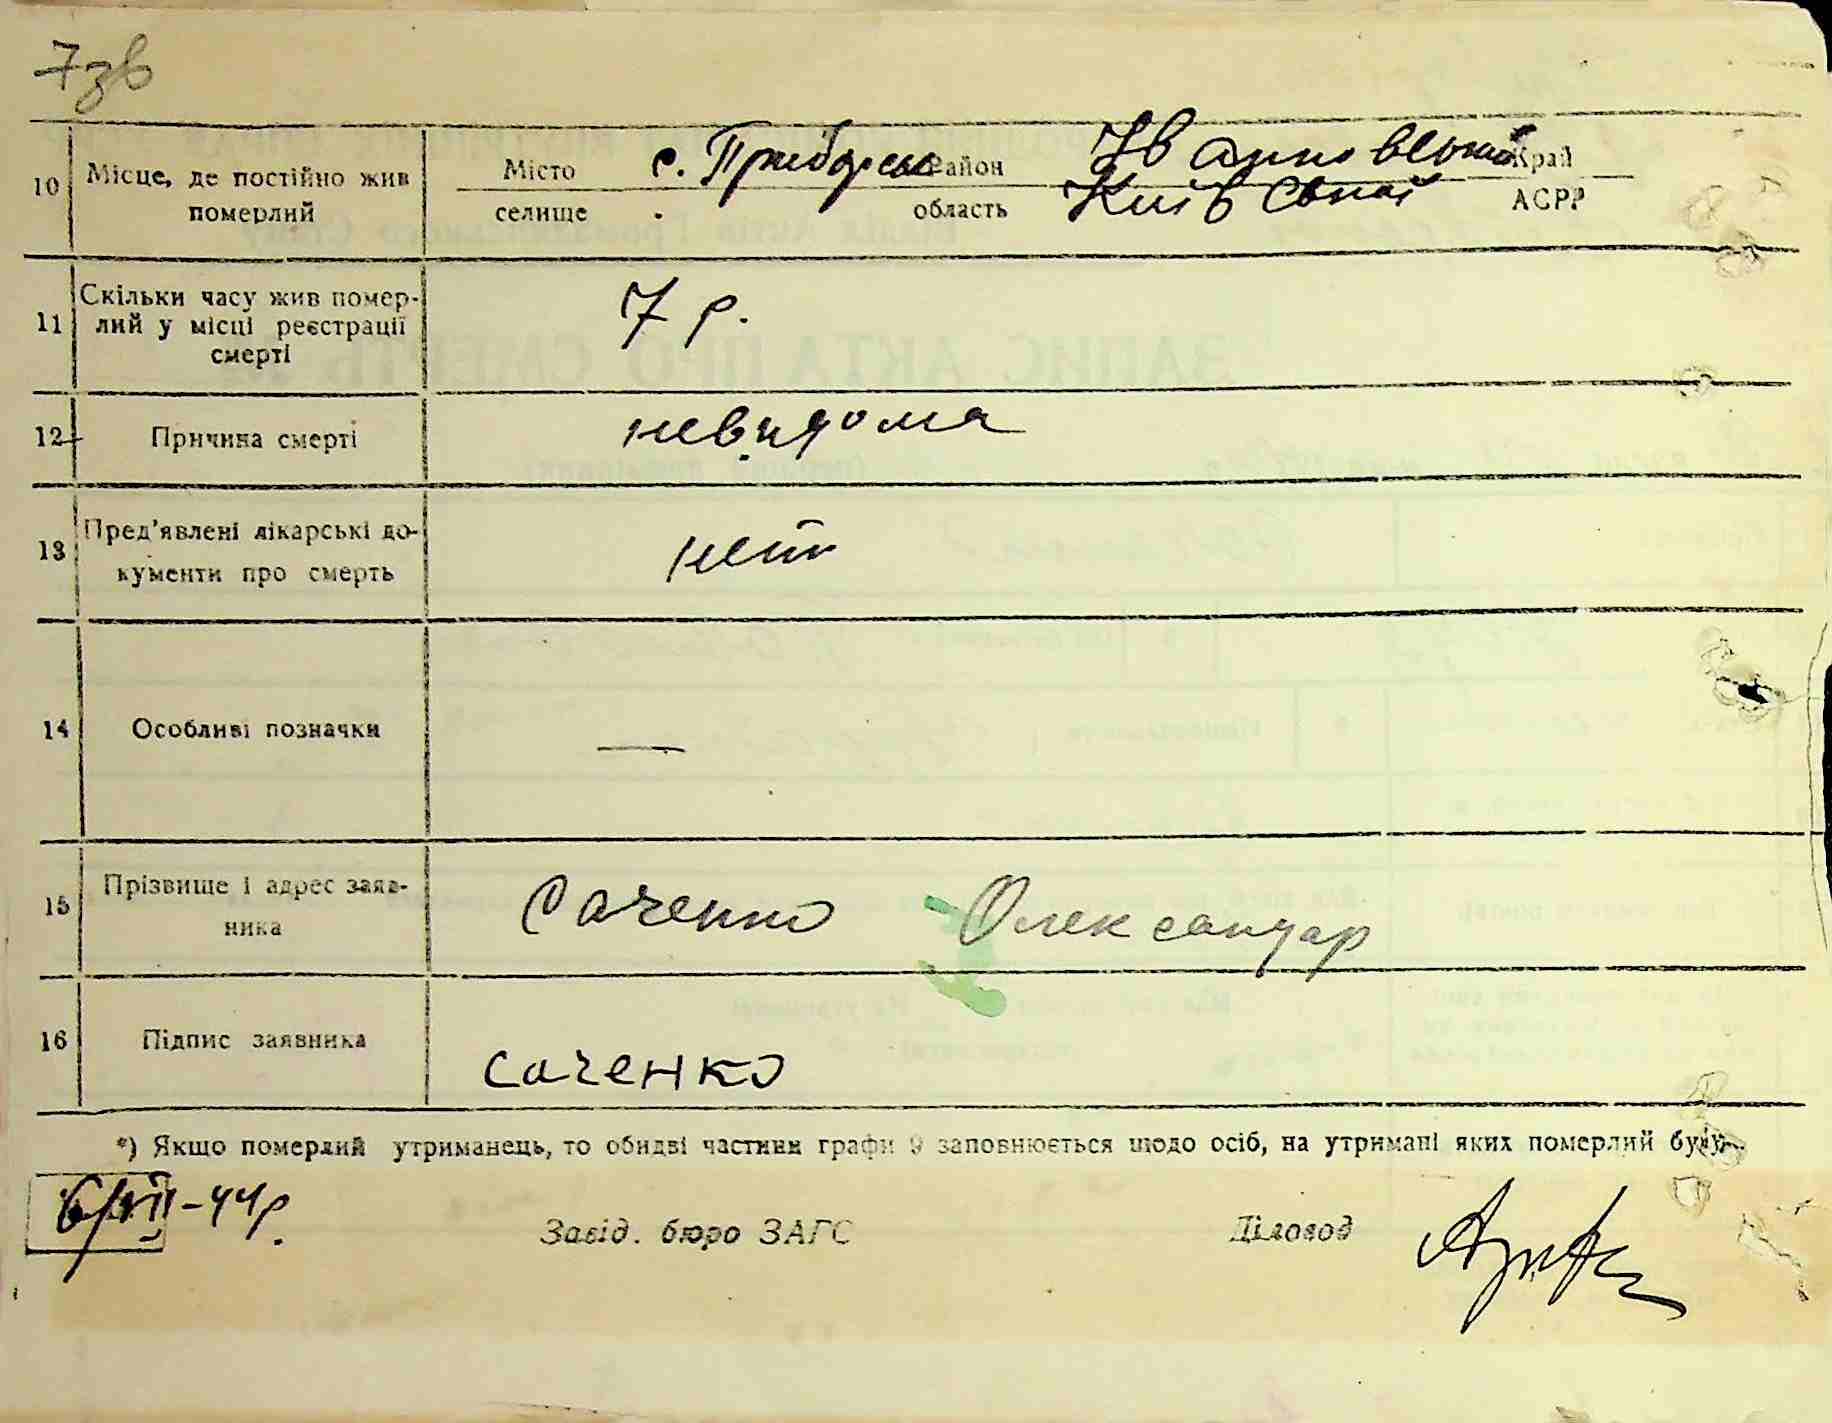 7зв
10 Місце, де постійно жив померлий
Місто с. Прибірськ Район Івановський Край
селище область Київської АСРР
11 Скільки часу жив померлий у місці реєстрації смерті
7 р.
12 Причина смерті
невидома
13 Пред'явлені лікарські документи про смерть
нет
14 Особливі позначки
—
15 Прізвище і адрес заявника
Саченко Олександар
16 Підпис заявника
Саченко
*) Якщо померлий утриманець, то обидві частини графи 9 заповнюється щодо осіб, на утримані яких померлий був.
6/VII-44р.
Завід. бюро ЗАГС Діловод